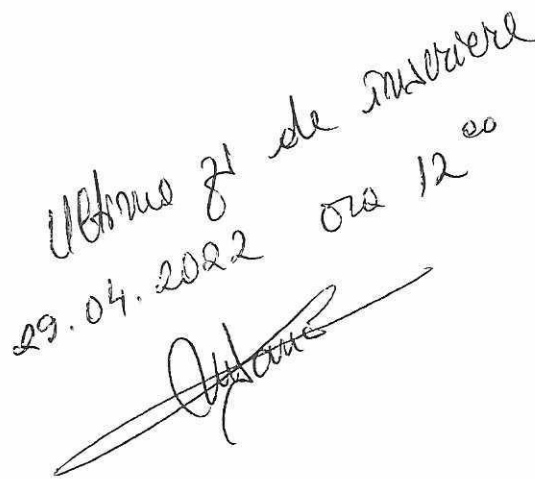 Ultima zi de înscriere
29.04.2022 ora 12⁰⁰